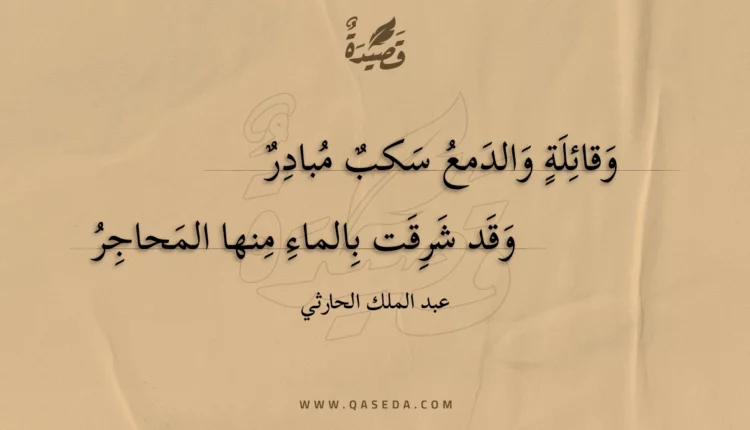 قَصِيدَةٌ
وَقائِلَةٍ وَالدَمعُ سَكبٌ مُبادِرٌ
وَقَد شَرِقَت بِالماءِ مِنها المَحاجِرُ
عبد الملك الحارثي
WWW.QASEDA.COM